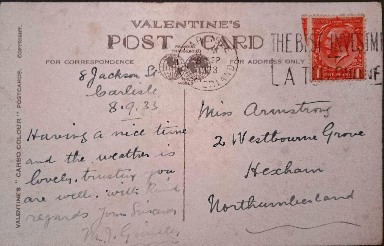 VALENTINE'S
POST CARD
FOR CORRESPONDENCE
FOR ADDRESS ONLY
VALENTINE'S "CARBO COLOUR" POSTCARDS.
COPYRIGHT.
THE BEST INVESTMENT
A TELE
8 Jackson St
Carlisle
8.9.33
Having a nice time
and the weather is
lovely. trusting you
are well. with kind
regards Yours Sincerely
Miss Armstrong
2 Westbourne Grove
Hexham
Northumberland